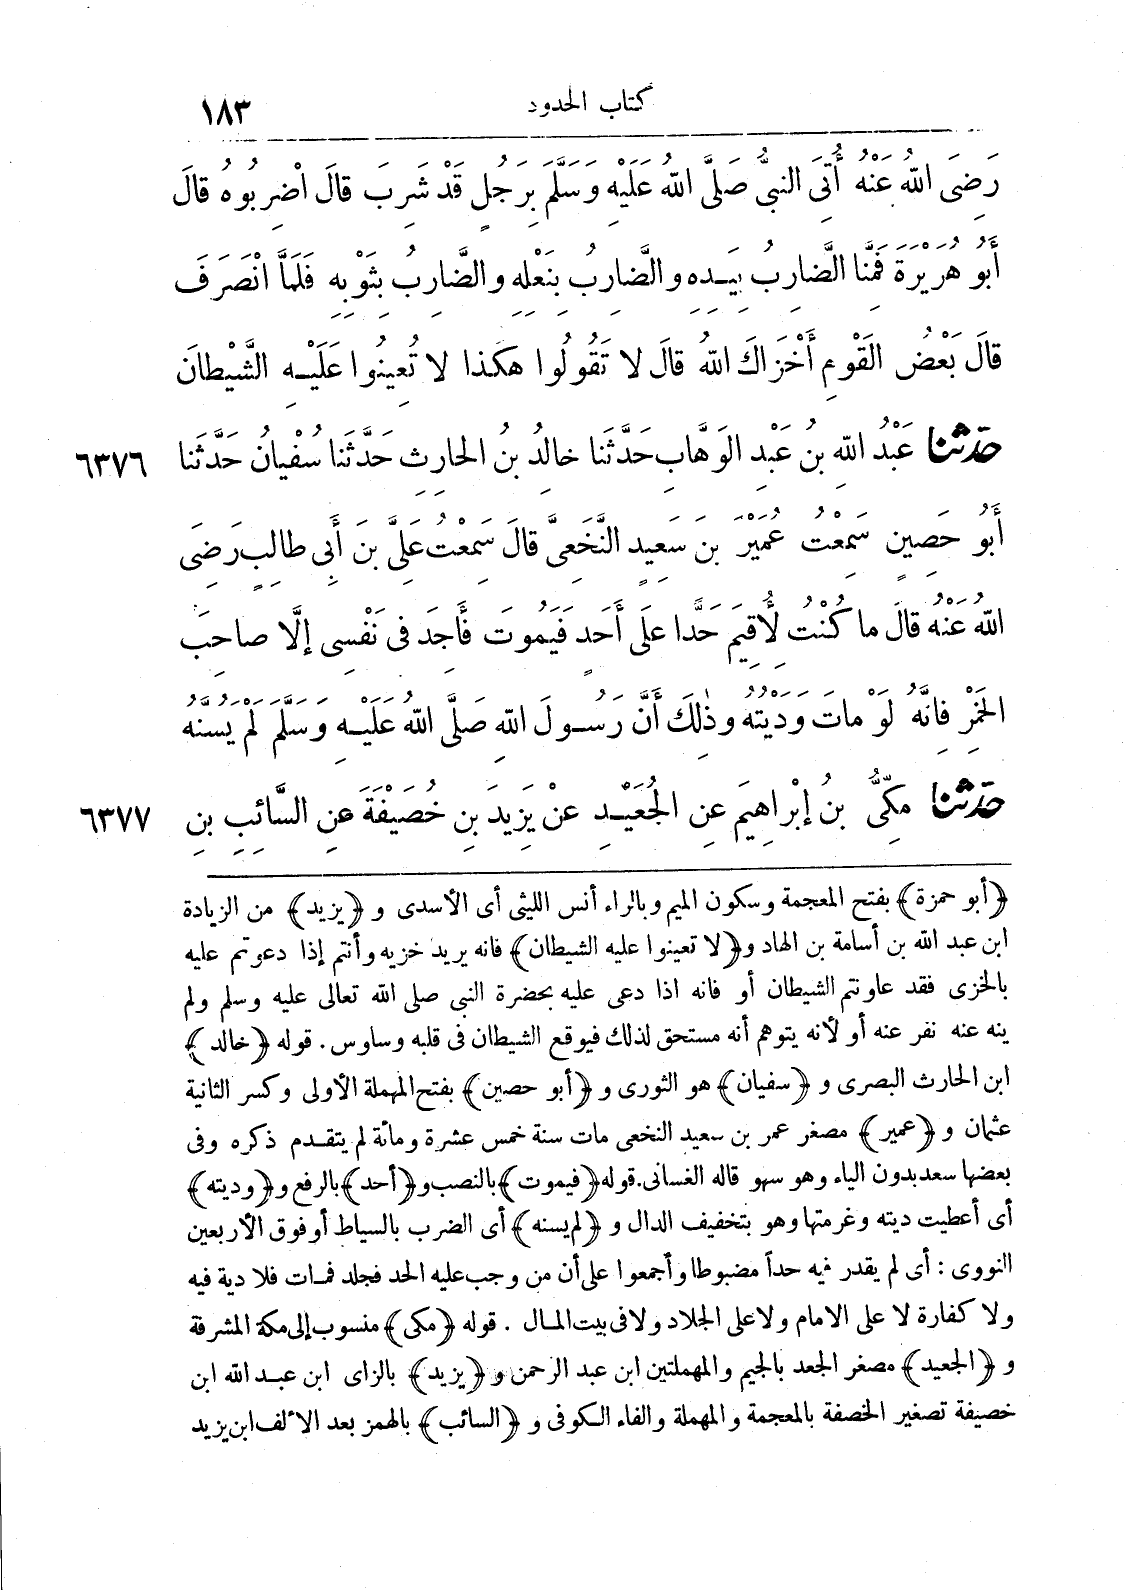 كتاب الحدود ١٨٣
رَضِىَ اللهُ عَنْهُ أُتِىَ النبىُّ صَلَّى اللهُ عَلَيْهِ وَسَلَّمَ بِرَجُلٍ قَدْ شَرِبَ قالَ اضْرِبُوهُ قالَ
أَبُو هُرَيْرَةَ فَمِنَّا الضَّارِبُ بِيَـدِهِ والضَّارِبُ بِنَعْلِهِ والضَّارِبُ بِثَوْبِهِ فَلَمَّا انْصَرَفَ
قالَ بَعْضُ القَوْمِ أَخْزَاكَ اللهُ قالَ لا تَقُولُوا هكذا لا تُعِينُوا عَلَيْـهِ الشَّيْطانَ
٦٣٧٦ حدّثنا عَبْدُ اللهِ بنُ عَبْدِ الوَهَّابِ حَدَّثَنا خالِدُ بنُ الحارِثِ حَدَّثَنا سُفْيانُ حَدَّثَنا
أَبُو حَصِينٍ سَمِعْتُ عُمَيْرَ بنَ سَعِيدٍ النَّخَعِىَّ قالَ سَمِعْتُ عَلِىَّ بنَ أَبِى طالِبٍ رَضِىَ
اللهُ عَنْهُ قالَ ما كُنْتُ لِأُقِيمَ حَدًّا علَى أَحَدٍ فَيَمُوتَ فَأَجِدَ فى نَفْسِى إلَّا صاحِبَ
الخَمْرِ فإنَّهُ لَوْ ماتَ وَدَيْتُهُ وذٰلِكَ أَنَّ رَسُـولَ اللهِ صَلَّى اللهُ عَلَيْـهِ وَسَلَّمَ لَمْ يَسُنَّهُ
٦٣٧٧ حدّثنا مَكِّىُّ بنُ إبْراهِيمَ عنِ الجُعَيْـدِ عنْ يَزِيدَ بنِ خُصَيْفَةَ عنِ السَّائِبِ بنِ
﴿أبو حمزة﴾ بفتح المعجمة وسكون الميم وبالراء أنس الليثى أى الأسدى و ﴿يزيد﴾ من الزيادة
ابن عبد الله بن أسامة بن الهاد و﴿لا تعينوا عليه الشيطان﴾ فانه يريد خزيه وأنتم إذا دعوتم عليه
بالخزى فقد عاونتم الشيطان أو فانه اذا دعى عليه بحضرة النبى صلى الله تعالى عليه وسلم ولم
ينه عنه نفر عنه أو لأنه يتوهم أنه مستحق لذلك فيوقع الشيطان فى قلبه وساوس . قوله ﴿خالد﴾
ابن الحارث البصرى و ﴿سفيان﴾ هو الثورى و ﴿أبو حصين﴾ بفتح المهملة الأولى وكسر الثانية
عثمان و ﴿عمير﴾ مصغر عمر بن سعيد النخعى مات سنة خمس عشرة ومائة لم يتقـدم ذكره وفى
بعضها سعد بدون الياء وهو سهو قاله الغسانى. قوله ﴿فيموت﴾ بالنصب و﴿أحد﴾ بالرفع و﴿وديته﴾
أى أعطيت ديته وغرمتها وهو بتخفيف الدال و ﴿لم يسنه﴾ أى الضرب بالسياط أو فوق الأربعين
النووى : أى لم يقدر فيه حداً مضبوطا وأجمعوا على أن من وجب عليه الحد فجلد فمـات فلا دية فيه
ولا كفارة لا على الامام ولا على الجلاد ولا فى بيت المـال . قوله ﴿مكى﴾ منسوب إلى مكة المشرفة
و ﴿الجعيد﴾ مصغر الجعد بالجيم والمهملتين ابن عبد الرحمن و ﴿يزيد﴾ بالزاى ابن عبـد الله ابن
خصيفة تصغير الخصفة بالمعجمة والمهملة والفاء الـكوفى و ﴿السائب﴾ بالهمز بعد الألف ابن يزيد